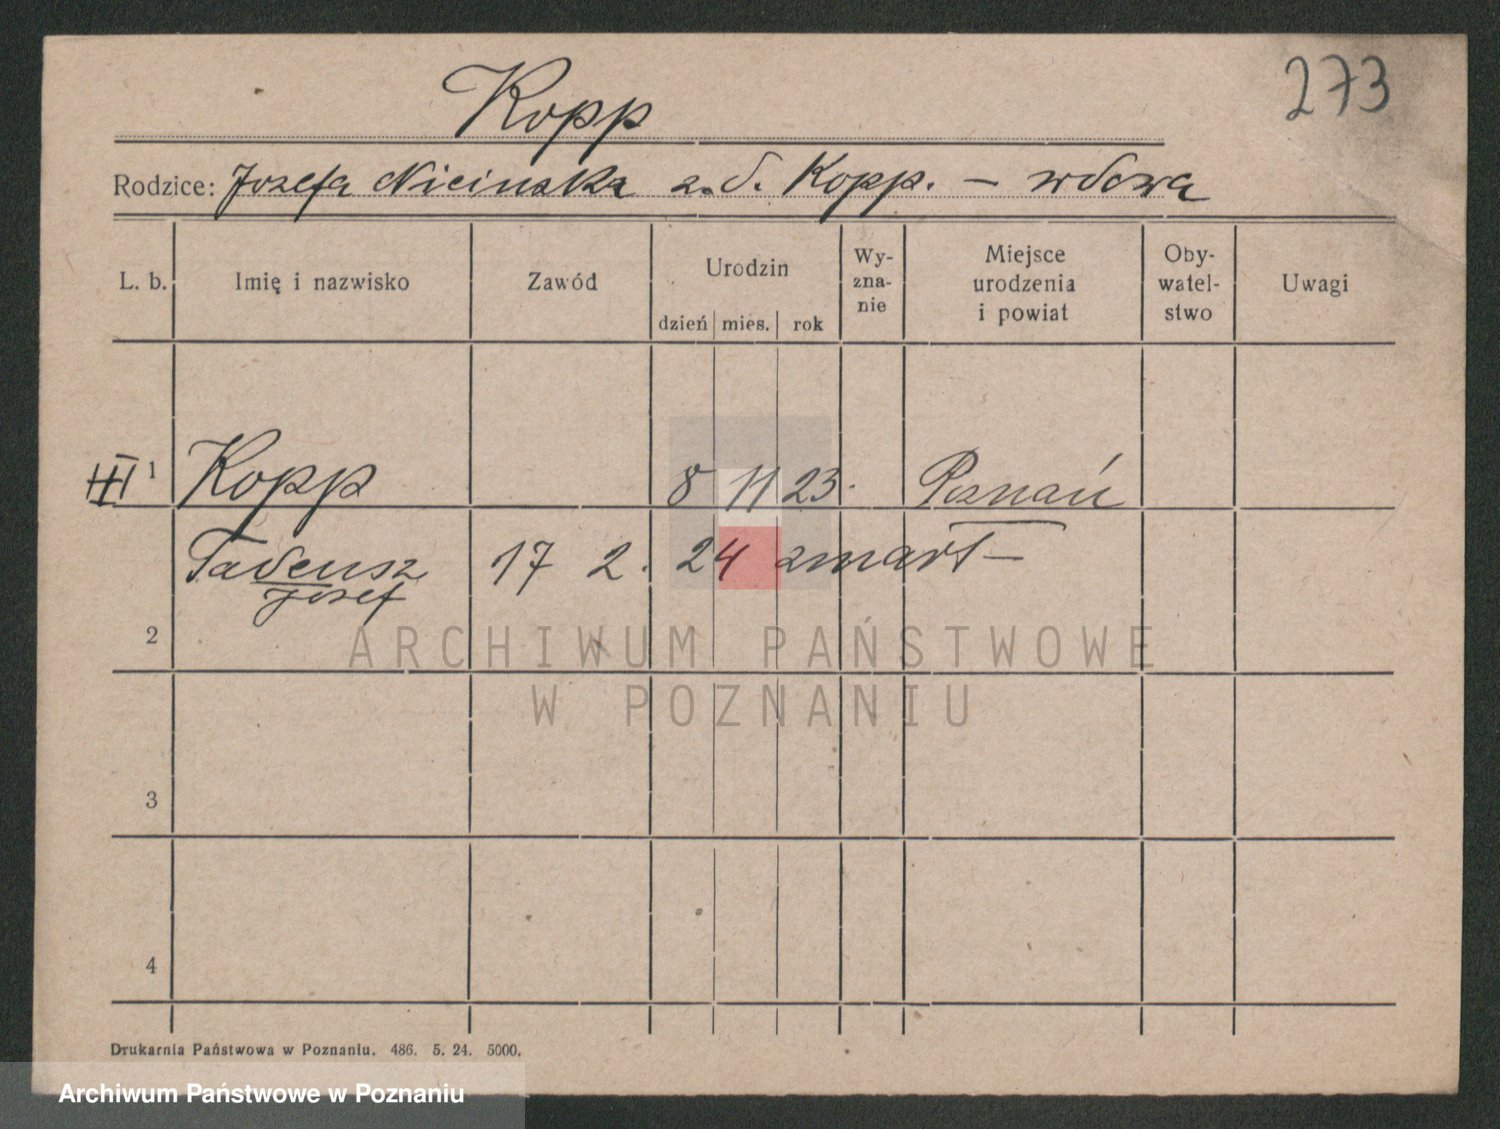 Kopp
273
Rodzice: Jozefa Nicinska z.d. Kopp. — wdowa
L. b. Imię i nazwisko Zawód Urodzin dzień mies. rok Wy-zna-nie Miejsce urodzenia i powiat Oby-watel-stwo Uwagi
III 1 Kopp 8 11 23. Poznań
Tadeusz 17 2. 24 zmart —
Jozef
2
ARCHIWUM PAŃSTWOWE
W POZNANIU
3
4
Drukarnia Państwowa w Poznaniu. 486. 5. 24. 5000.
Archiwum Państwowe w Poznaniu